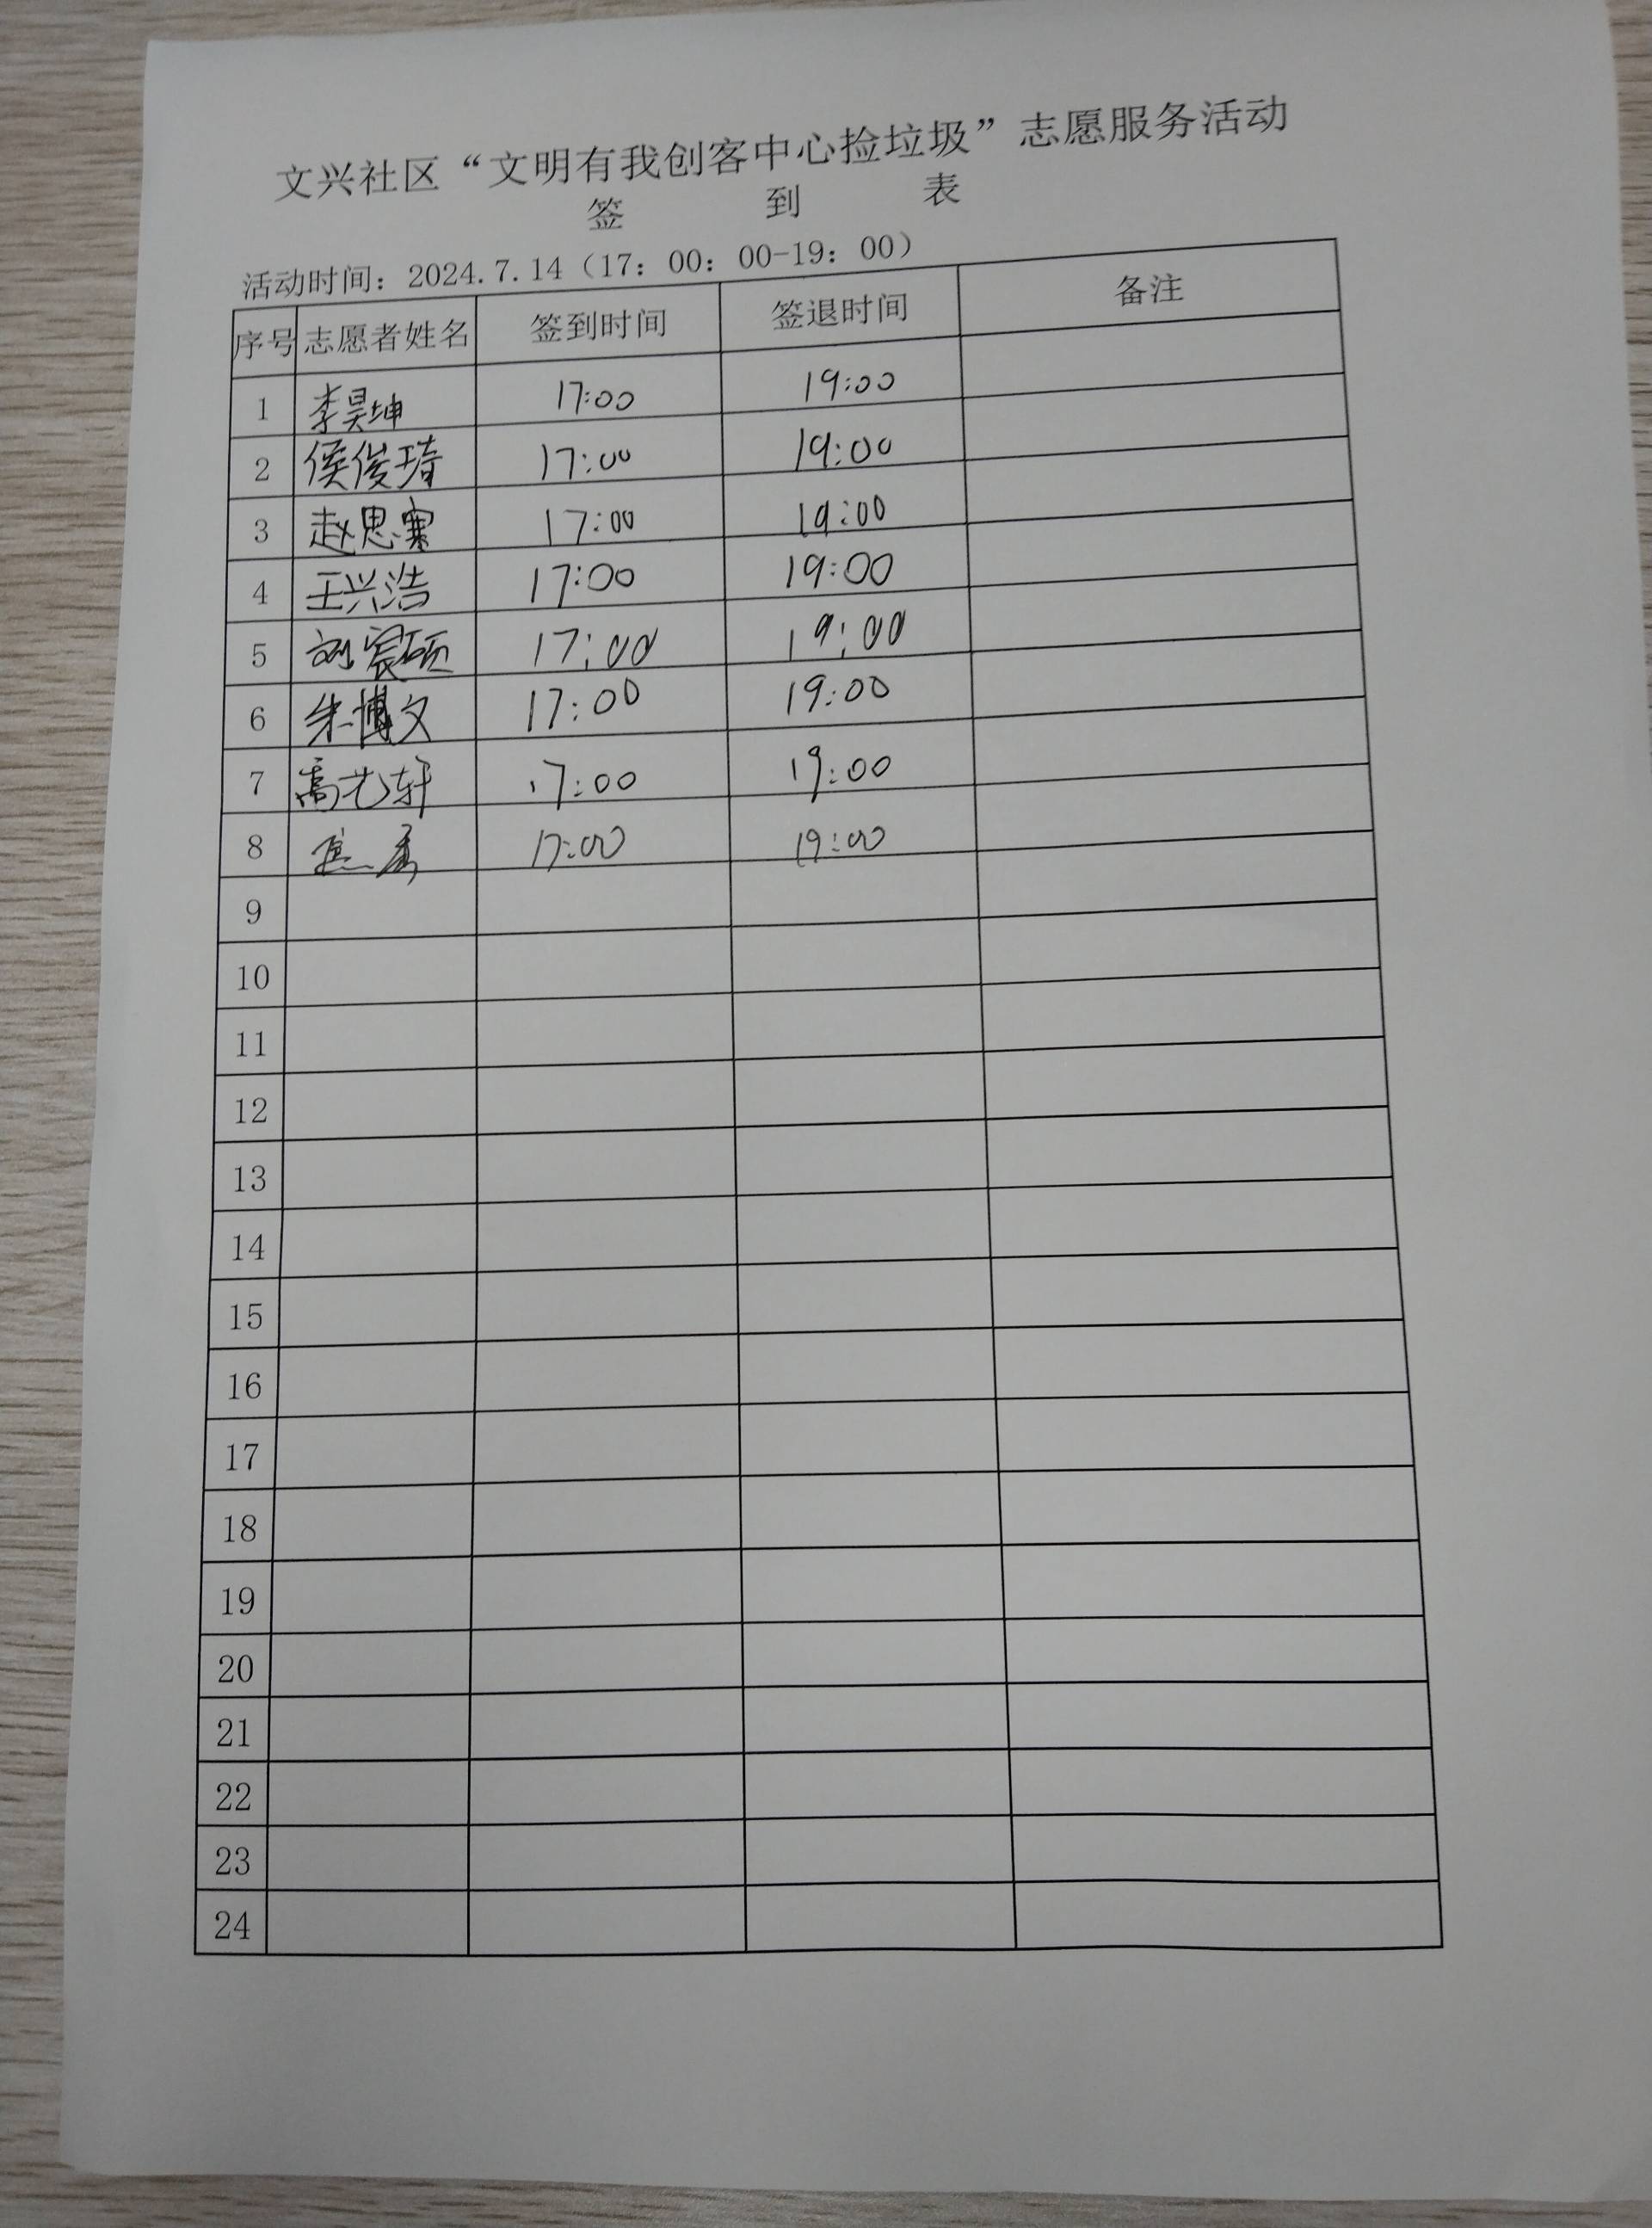 文兴社区“文明有我创客中心捡垃圾”志愿服务活动
签 到 表
活动时间：2024.7.14（17：00：00-19：00）
序号 志愿者姓名 签到时间 签退时间 备注
1 李昊坤 17:00 19:00
2 侯俊琦 17:00 19:00
3 赵思寒 17:00 19:00
4 王兴浩 17:00 19:00
5 刘宸硕 17:00 19:00
6 朱博文 17:00 19:00
7 高艺轩 17:00 19:00
8 17:00 19:00
9
10
11
12
13
14
15
16
17
18
19
20
21
22
23
24